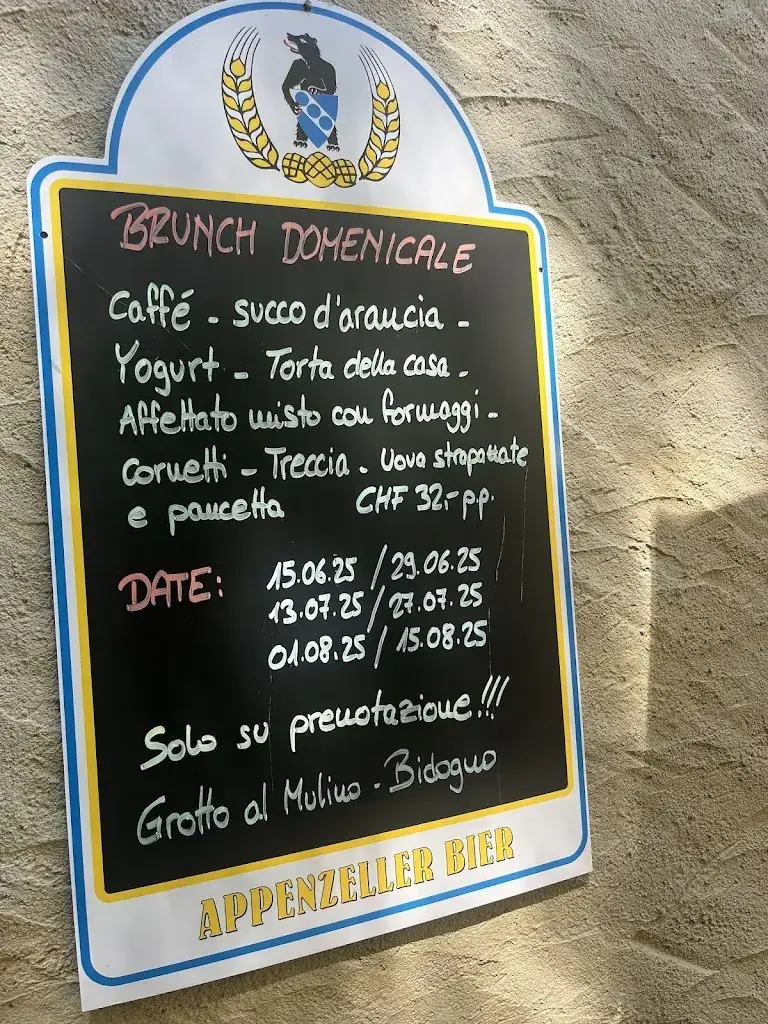 BRUNCH DOMENICALE
Caffé - succo d'arancia -
Yogurt - Torta della casa -
Affettato misto con formaggi -
Cornetti - Treccia - Uova strapazzate
e pancetta CHF 32.- p.p.
DATE: 15.06.25 / 29.06.25
13.07.25 / 27.07.25
01.08.25 / 15.08.25
Solo su prenotazione!!!
Grotto al Mulino - Bidogno
APPENZELLER BIER